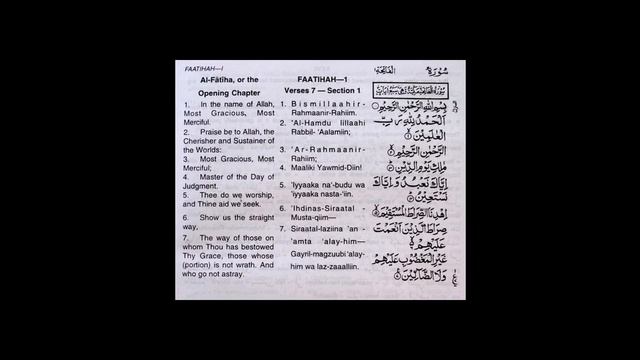 FAATIHAH—I
سُورَة الفَاتِحَة
Al-Fātīha, or the
Opening Chapter
1. In the name of Allah,
Most Gracious, Most
Merciful.
2. Praise be to Allah, the
Cherisher and Sustainer of
the Worlds:
3. Most Gracious, Most
Merciful;
4. Master of the Day of
Judgment.
5. Thee do we worship,
and Thine aid we seek.
6. Show us the straight
way,
7. The way of those on
whom Thou has bestowed
Thy Grace, those whose
(portion) is not wrath. And
who go not astray.
FAATIHAH—1
Verses 7 — Section 1
1. Bismillaahir-
Rahmaanir-Rahiim.
2. 'Al-Hamdu lillaahi
Rabbil- 'Aalamiin;
3. 'Ar-Rahmaanir-
Rahiim;
4. Maaliki Yawmid-Diin!
5. 'Iyyaaka na'-budu wa
'iyyaaka nasta-'iin.
6. 'Ihdinas-Siraatal -
Musta-qiim—
7. Siraatal-laziina 'an -
'amta 'alay-him—
Gayril-magzuubi 'alay-
him wa laz-zaaalliin.
بِسْمِ اللهِ الرَّحْمٰنِ الرَّحِيْمِ
اَلْحَمْدُ لِلّٰهِ رَبِّ
الْعٰلَمِيْنَ
الرَّحْمٰنِ الرَّحِيْمِ
مٰلِكِ يَوْمِ الدِّيْنِ
اِيَّاكَ نَعْبُدُ وَاِيَّاكَ
نَسْتَعِيْنُ
اِهْدِنَا الصِّرَاطَ الْمُسْتَقِيْمَ
صِرَاطَ الَّذِيْنَ اَنْعَمْتَ
عَلَيْهِمْ
غَيْرِ الْمَغْضُوْبِ عَلَيْهِمْ
وَلَا الضَّآلِّيْنَ